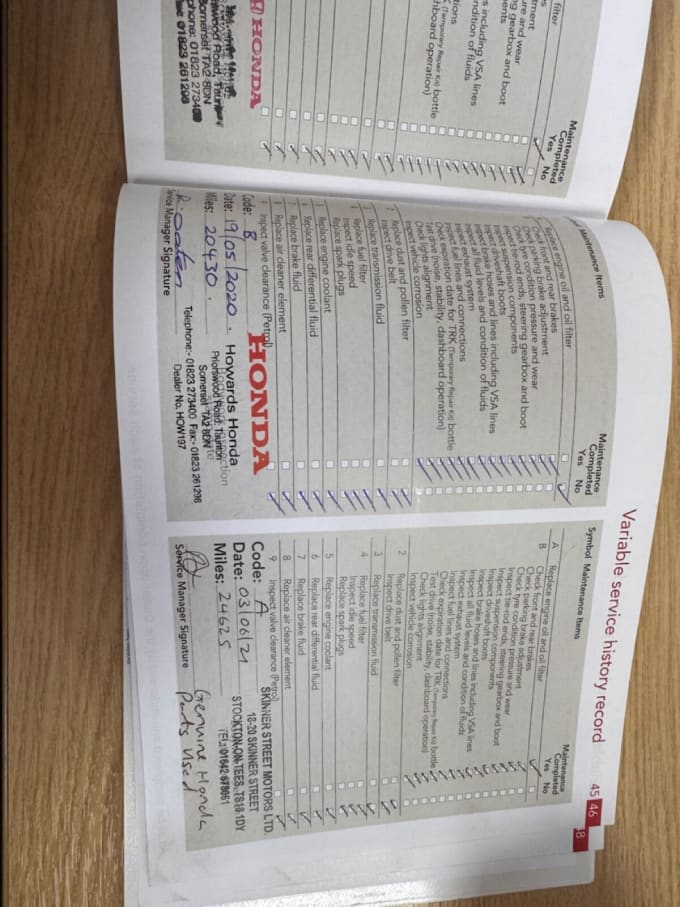 filter
stment
ure and wear
g gearbox and boot
nents
s including VSA lines
ndition of fluids
tions
(Temporary Repair Kit) bottle
hboard operation)
Maintenance
Completed
Yes No
HONDA
Somerset TA2 8DN
phone: 01823 27340
Fax: 01823 261298
Maintenance Items
Maintenance
Completed
Yes No
Replace engine oil and oil filter
Check front and rear brakes
Check parking brake adjustment
Check tyre condition pressure and wear
Inspect tie-rod ends, steering gearbox and boot
Inspect suspension components
Inspect driveshaft boots
Inspect brake hoses and lines including VSA lines
Inspect all fluid levels and condition of fluids
Inspect exhaust system
Inspect fuel lines and connections
Check expiration date for TRK (Temporary Repair Kit) bottle
Test drive (noise, stability, dashboard operation)
Check lights alignment
Inspect vehicle corrosion
2 Replace dust and pollen filter
Inspect drive belt
3 Replace transmission fluid
4 Replace fuel filter
Inspect idle speed
Replace spark plugs
5 Replace engine coolant
6 Replace rear differential fluid
7 Replace brake fluid
8 Replace air cleaner element
9 Inspect valve clearance (Petrol)
HONDA
Code: B
Date: 19/05/2020.
Miles: 20430.
Service Manager Signature
Howards Honda
Priorswood Road, Taunton
Somerset TA2 8DN
Telephone:- 01823 273400 Fax:- 01823 261298
Dealer No. HOW197
Variable service history record
45 46
48
Symbol Maintenance Items
Maintenance
Completed
Yes No
A Replace engine oil and oil filter
B Check front and rear brakes
Check parking brake adjustment
Check tyre condition pressure and wear
Inspect tie-rod ends, steering gearbox and boot
Inspect suspension components
Inspect driveshaft boots
Inspect brake hoses and lines including VSA lines
Inspect all fluid levels and condition of fluids
Inspect exhaust system
Inspect fuel lines and connections
Check expiration date for TRK (Temporary Repair Kit) bottle
Test drive (noise, stability, dashboard operation)
Check lights alignment
Inspect vehicle corrosion
2 Replace dust and pollen filter
Inspect drive belt
3 Replace transmission fluid
4 Replace fuel filter
Inspect idle speed
Replace spark plugs
5 Replace engine coolant
6 Replace rear differential fluid
7 Replace brake fluid
8 Replace air cleaner element
9 Inspect valve clearance (Petrol)
Code: A
Date: 03/06/21
Miles: 24625
Service Manager Signature
SKINNER STREET MOTORS LTD.
18-20 SKINNER STREET
STOCKTON-ON-TEES, TS18 1DY
TEL: 01642 679061
Genuine Honda
Parts Used